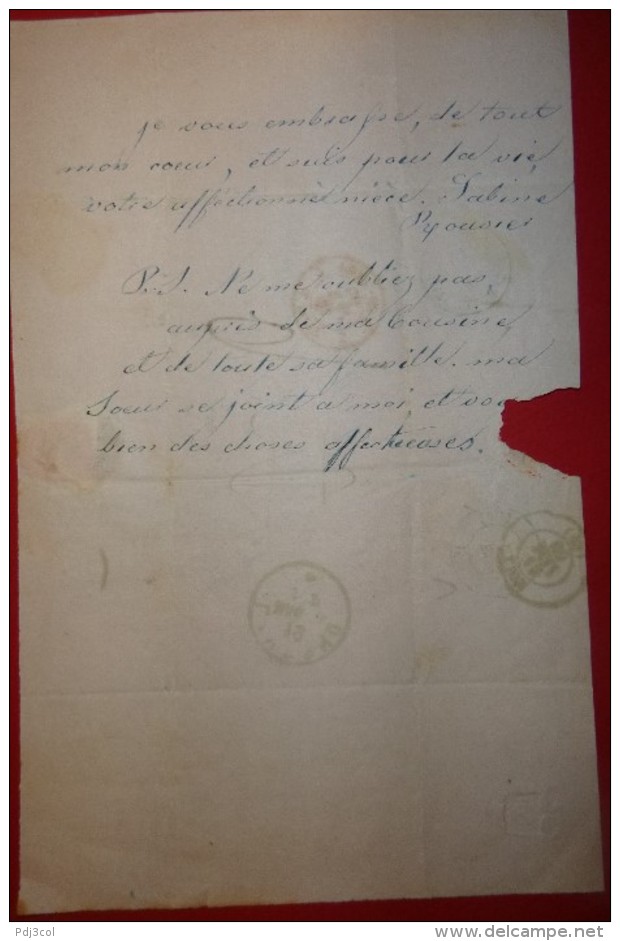 je vous embrasse, de tout
mon cœur, et suis pour la vie,
votre affectionné nièce. Sabine
P.S. Ne me oubliez pas,
auprès de ma Cousine,
et de toute sa famille. ma
Soeur se joint a moi, et vou
bien des choses affectueuses.
Pdj3col
delcampe.net